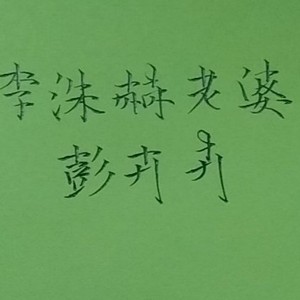 李洙赫老婆
彭卉卉